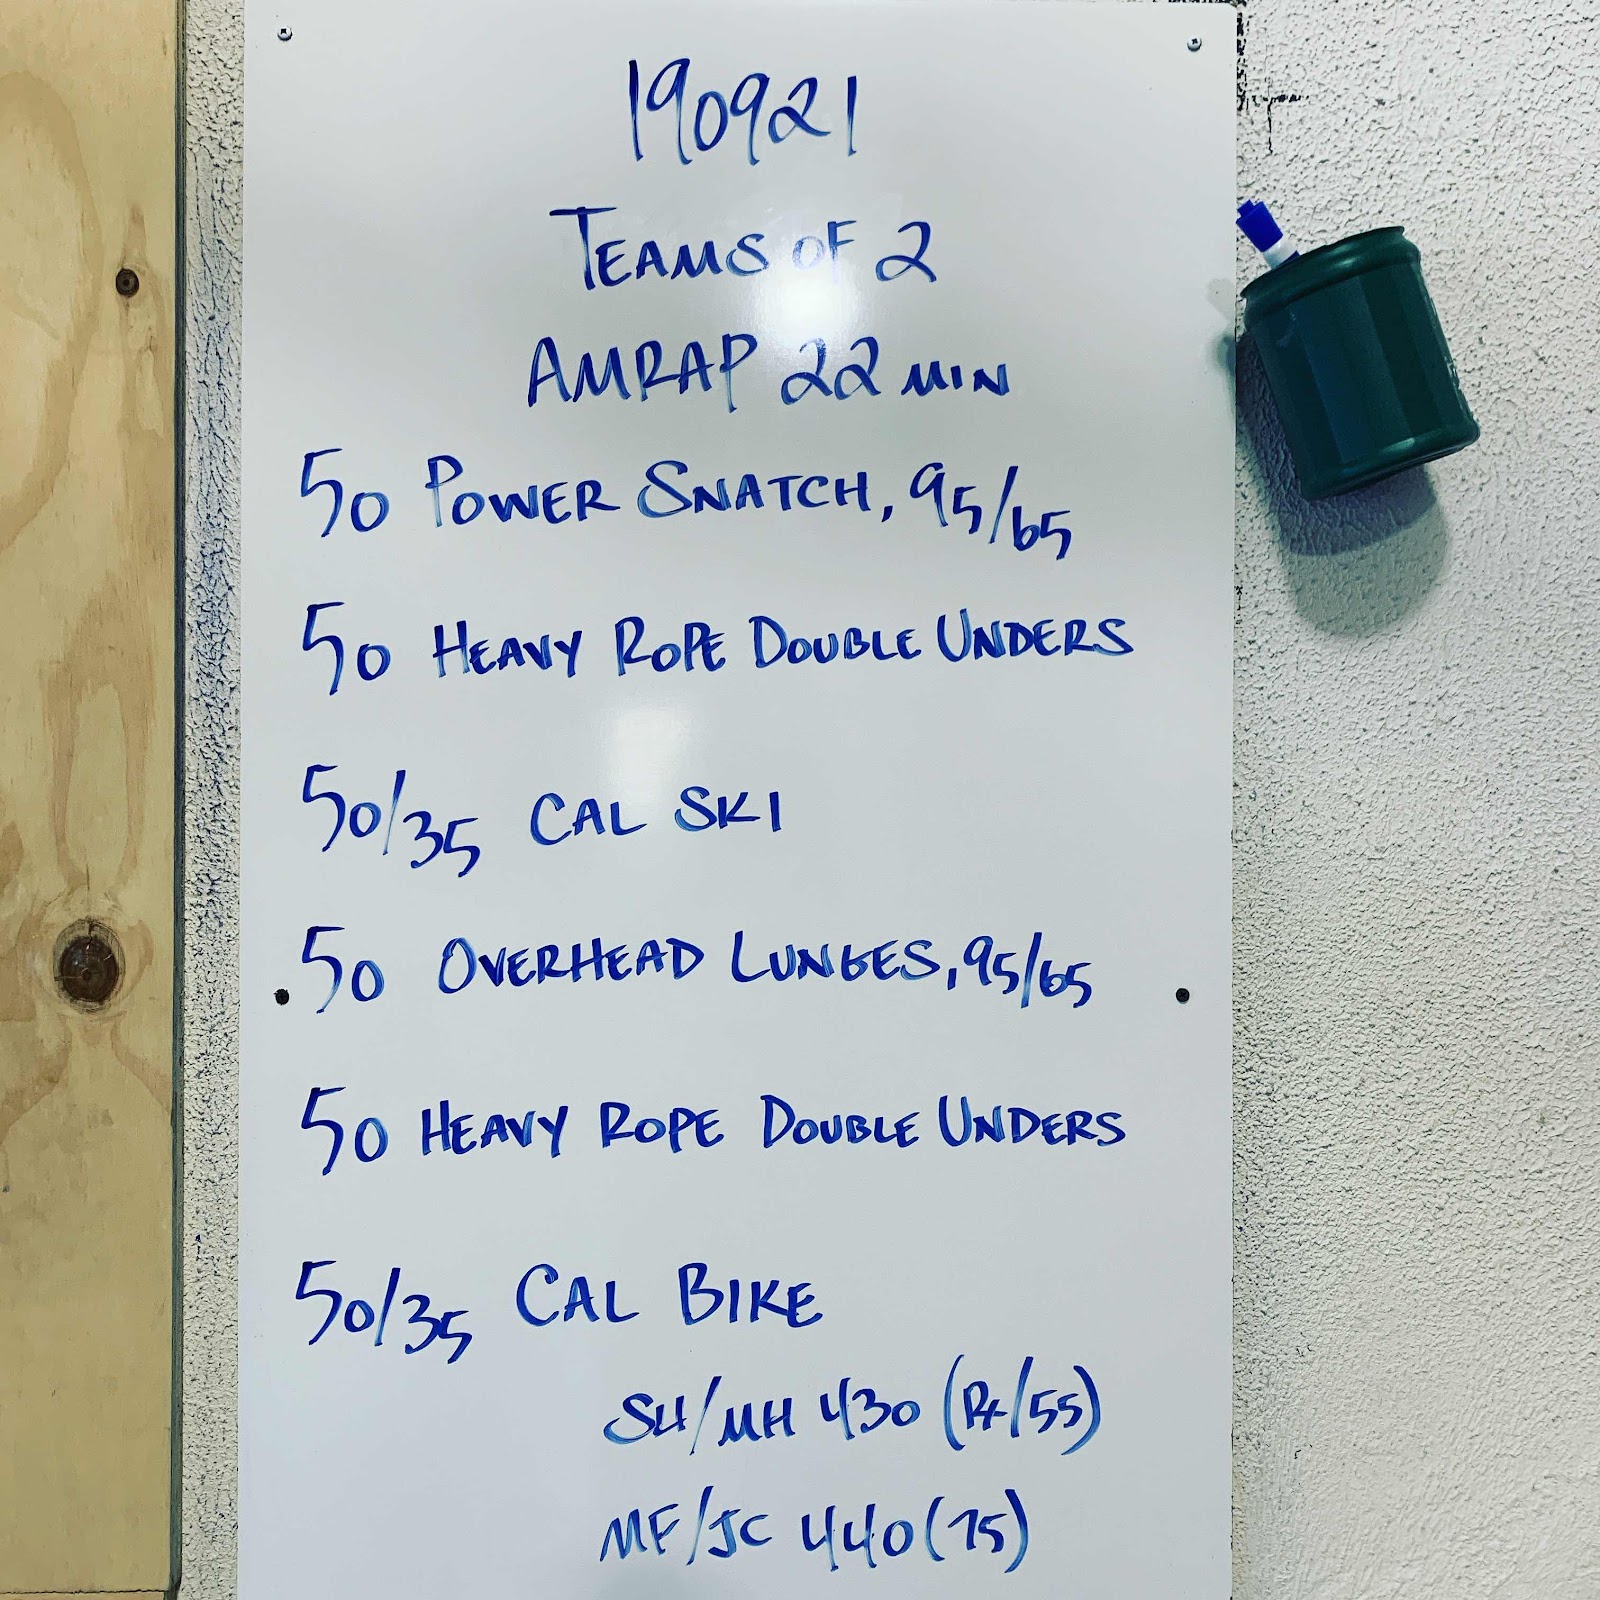 190921
TEAMS OF 2
AMRAP 22 MIN
50 POWER SNATCH, 95/65
50 HEAVY ROPE DOUBLE UNDERS
50/35 CAL SKI
50 OVERHEAD LUNGES, 95/65
50 HEAVY ROPE DOUBLE UNDERS
50/35 CAL BIKE
SH/MH 430 (Rx/55)
MF/JC 440 (75)